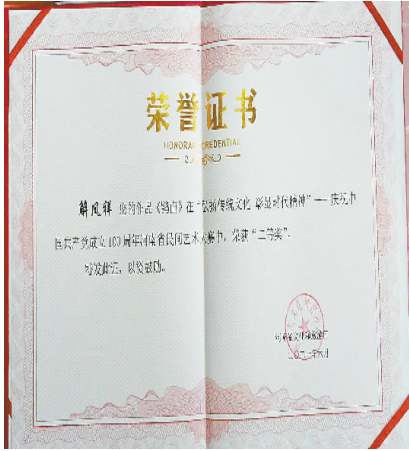 荣誉证书
HONORARY CREDENTIAL
解凤祥 您的作品《鸡西》在“弘扬传统文化 彰显时代精神”——庆祝中
国共产党成立100周年河南省民间艺术大赛中，荣获“二等奖”。
特发此证，以资鼓励。
河南省文化和旅游厅
二〇二一年六月